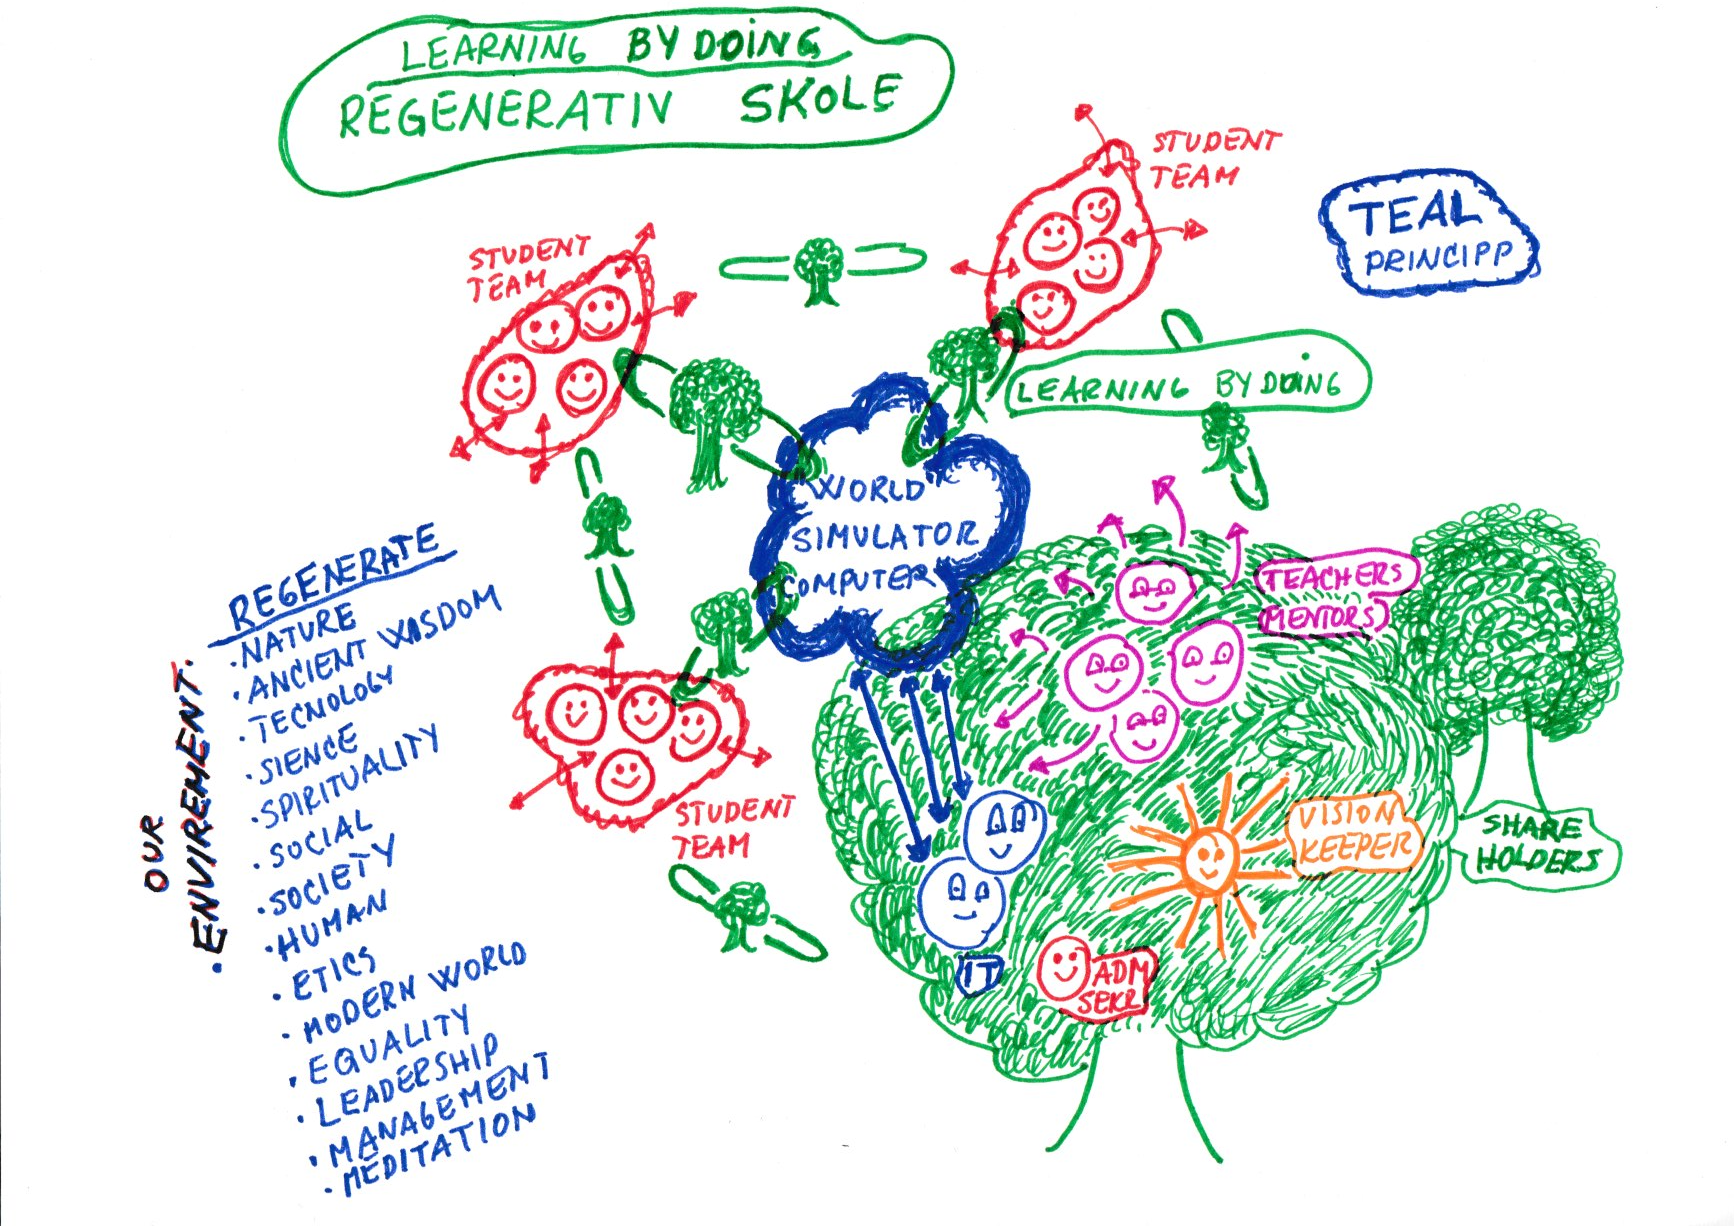 LEARNING BY DOING
REGENERATIV SKOLE
STUDENT
TEAM
STUDENT
TEAM
TEAL
PRINCIPP
LEARNING BY DOING
"WORLD"
SIMULATOR
COMPUTER
TEACHERS
MENTORS
REGENERATE
• NATURE
• ANCIENT WISDOM
• TECNOLOGY
• SIENCE
• SPIRITUALITY
• SOCIAL
• SOCIETY
• HUMAN
• ETICS
• MODERN WORLD
• EQUALITY
• LEADERSHIP
• MANAGEMENT
• MEDITATION
OUR
ENVIREMENT
STUDENT
TEAM
VISION
KEEPER
SHARE
HOLDERS
IT
ADM
SEKR